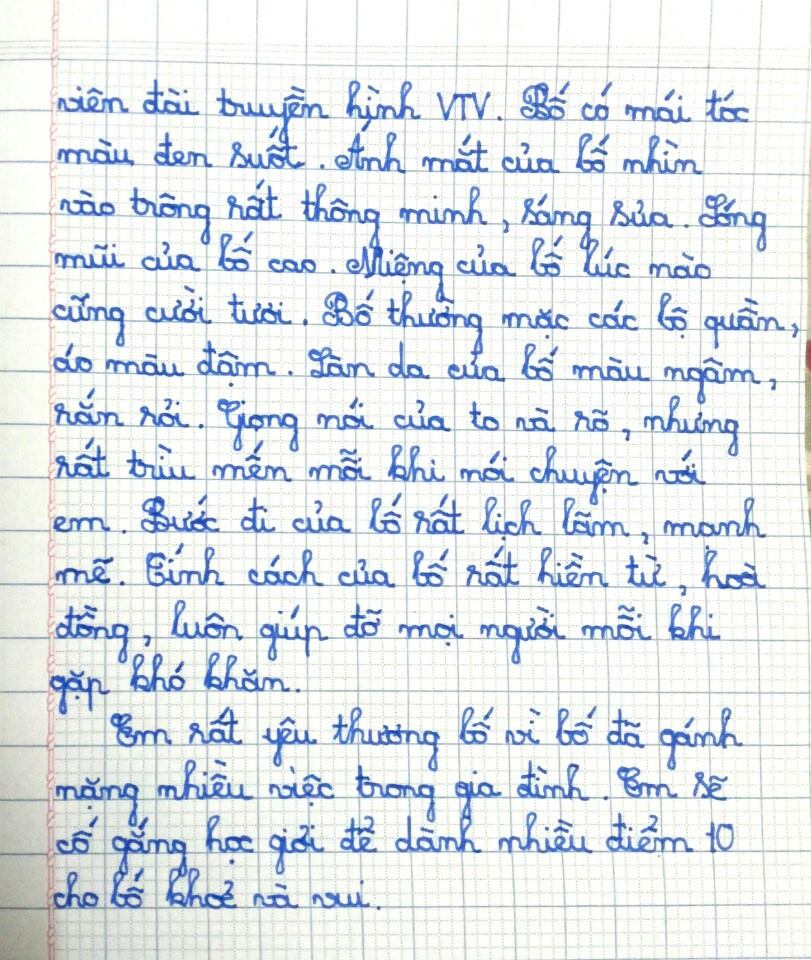 viên đài truyền hình VTV. Bố có mái tóc
màu đen suốt. Ánh mắt của bố nhìn
vào trông rất thông minh, sáng sủa. Sống
mũi của bố cao. Miệng của bố lúc nào
cũng cười tươi. Bố thường mặc các bộ quần,
áo màu đậm. Làn da của bố màu ngâm,
rắn rỏi. Giọng nói của to và rõ, nhưng
rất trìu mến mỗi khi nói chuyện với
em. Bước đi của bố rất lịch lãm, mạnh
mẽ. Tính cách của bố rất hiền từ, hoà
đồng, luôn giúp đỡ mọi người mỗi khi
gặp khó khăn.
Em rất yêu thương bố vì bố đã gánh
nặng nhiều việc trong gia đình. Em sẽ
cố gắng học giỏi để dành nhiều điểm 10
cho bố khoẻ và vui.